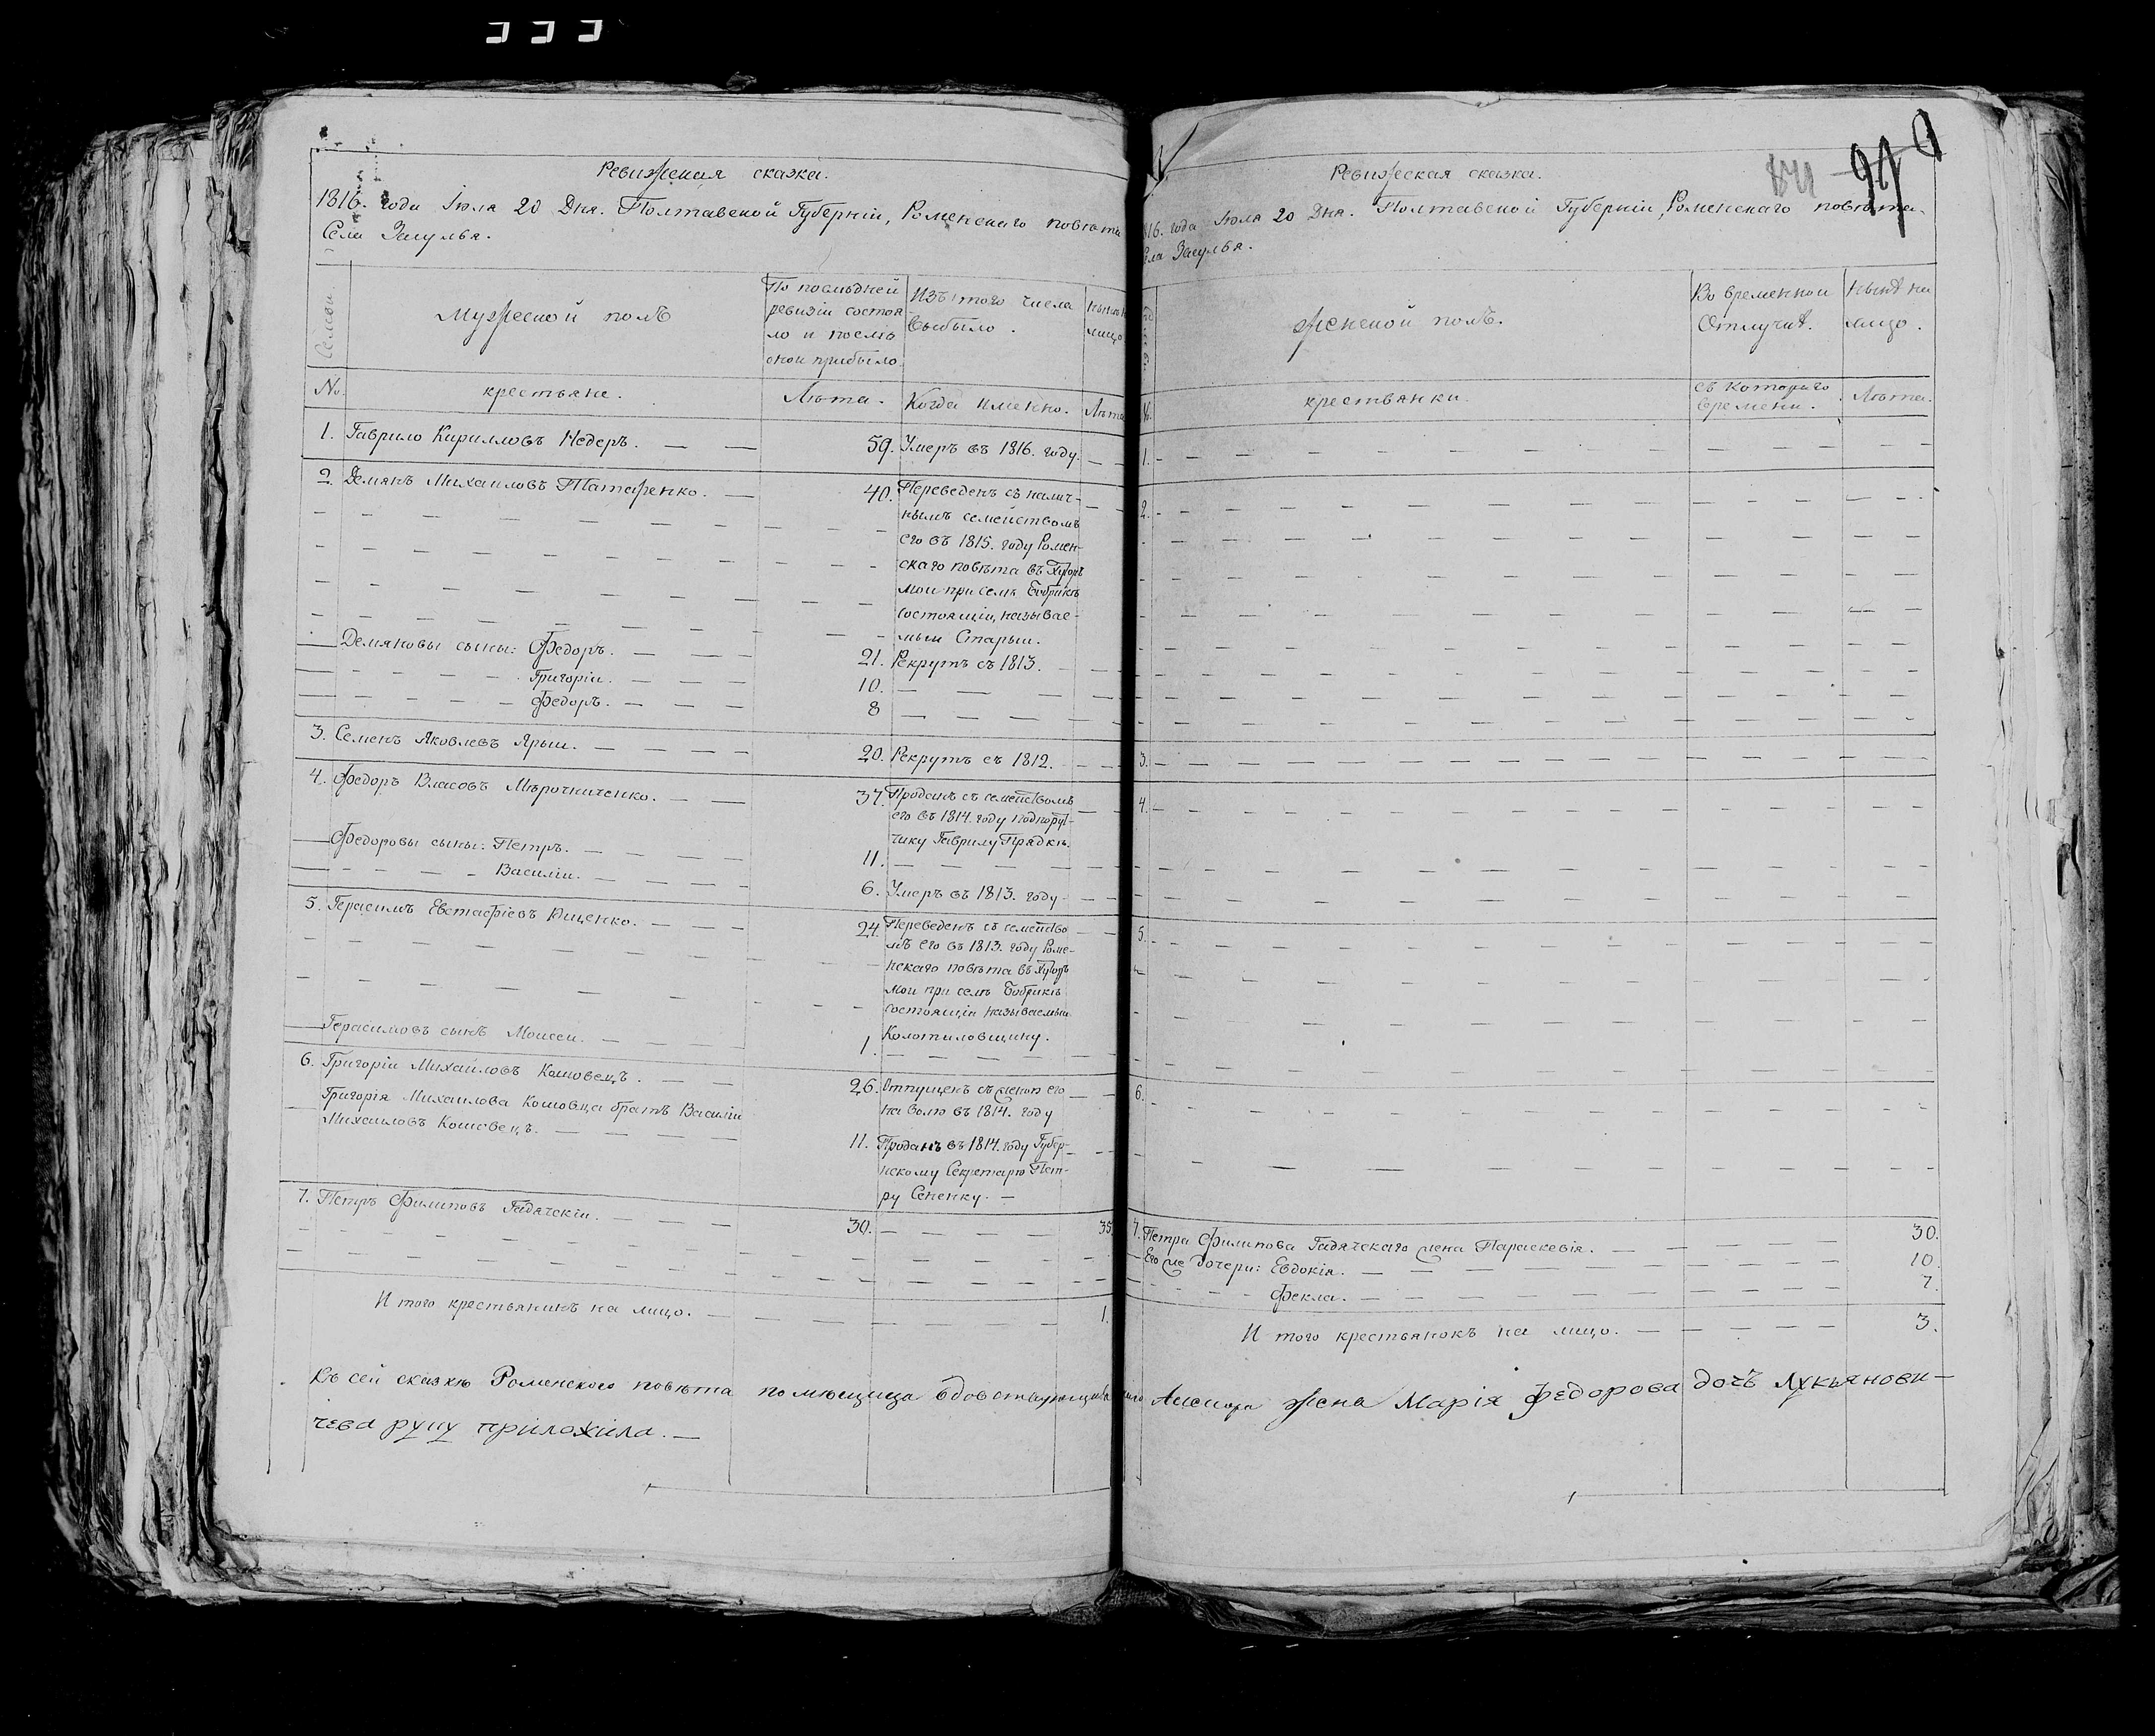 Ревижская сказка.
1816. года Іюля 20 Дня. Полтавской Губерніи, Роменскаго повѣта
Села Засулья.
Семьи.
Мужеской полъ
По послѣдней
ревизіи состоя
ло и послѣ
оной прибыло
Изъ того числа
выбыло.
ныне на
лицо
№.
крестьяне.
Лѣта.
Когда именно.
Лѣта
1. Гаврило Кириловъ Недеръ. — — 59. Умеръ въ 1816. году. — —
2. Демянъ Михаиловъ Татаренко. — 40. Переведенъ съ налич-
нымъ семействомъ
его въ 1815. году Ромен-
скаго повѣта въ Хуторъ
мои при селѣ Бобрикѣ
состоящіи, называе-
мыи Старыи.
Демяновы сыны: Федоръ. — — — 21. Рекрутъ съ 1813.
Григоріи. — — — 10. — — —
Федоръ. — — — 8 — — —
3. Семенъ Яковлевъ Ярыш. — — — — 20. Рекрутъ съ 1812.
4. Федоръ Власовъ Мѣрочниченко. — — 37. Проданъ съ семействомъ
его въ 1814. году подпору-
чику Гаврилу Прядкѣ.
Федоровы сыны: Петръ. — — — — 11. — — — —
Василіи. — — — — 6. Умеръ въ 1813. году
5. Герасимъ Евстафіевъ Ященко. — — — 24. Переведенъ съ семейство
мъ его въ 1813. году Роме-
нскаго повѣта въ Хуторъ
мои при селѣ Бобрикѣ
состоящіи называемыи
Колотиловщину.
Герасимовъ сынъ Моисеи. — — — — 1. — — — —
6. Григоріи Михайловъ Кошовецъ. — — 26. Отпущенъ съ женою его
на волю въ 1814. году
Григорія Михаилова Кошовца братъ Василіи
Михаиловъ Кошовецъ. — — — — 11. Проданъ въ 1814. году Губер-
нскому Секретарю Пет-
ру Сененку. —
7. Петръ Филиповъ Гадячскіи. — — — 30. — — — — 35.
И того крестьянинъ на лицо. — — — — — 1.
Ревижская сказка.
1816. года Іюля 20 Дня. Полтавской Губерніи, Роменскаго повѣта.
Села Засулья.
женской полъ.
Во временной
Отлучкѣ.
Нынѣ на
лицо.
№.
крестьянки.
съ котораго
времени.
Лѣта.
1. — — —
2. — — —
3. — — —
4. — — —
5. — — —
6. — — —
7. Петра Филипова Гадячскаго жена Параскевія. — — — — 30.
Его же дочери: Евдокія. — — — — 10.
Фекла. — — — — 7.
И того крестьянокъ на лицо. — — — — 3.
Къ сей сказкѣ Роменского повѣта помѣщица вдовствующая жена Марія Федорова дочъ Лукьянови-
чева руку приложила. —